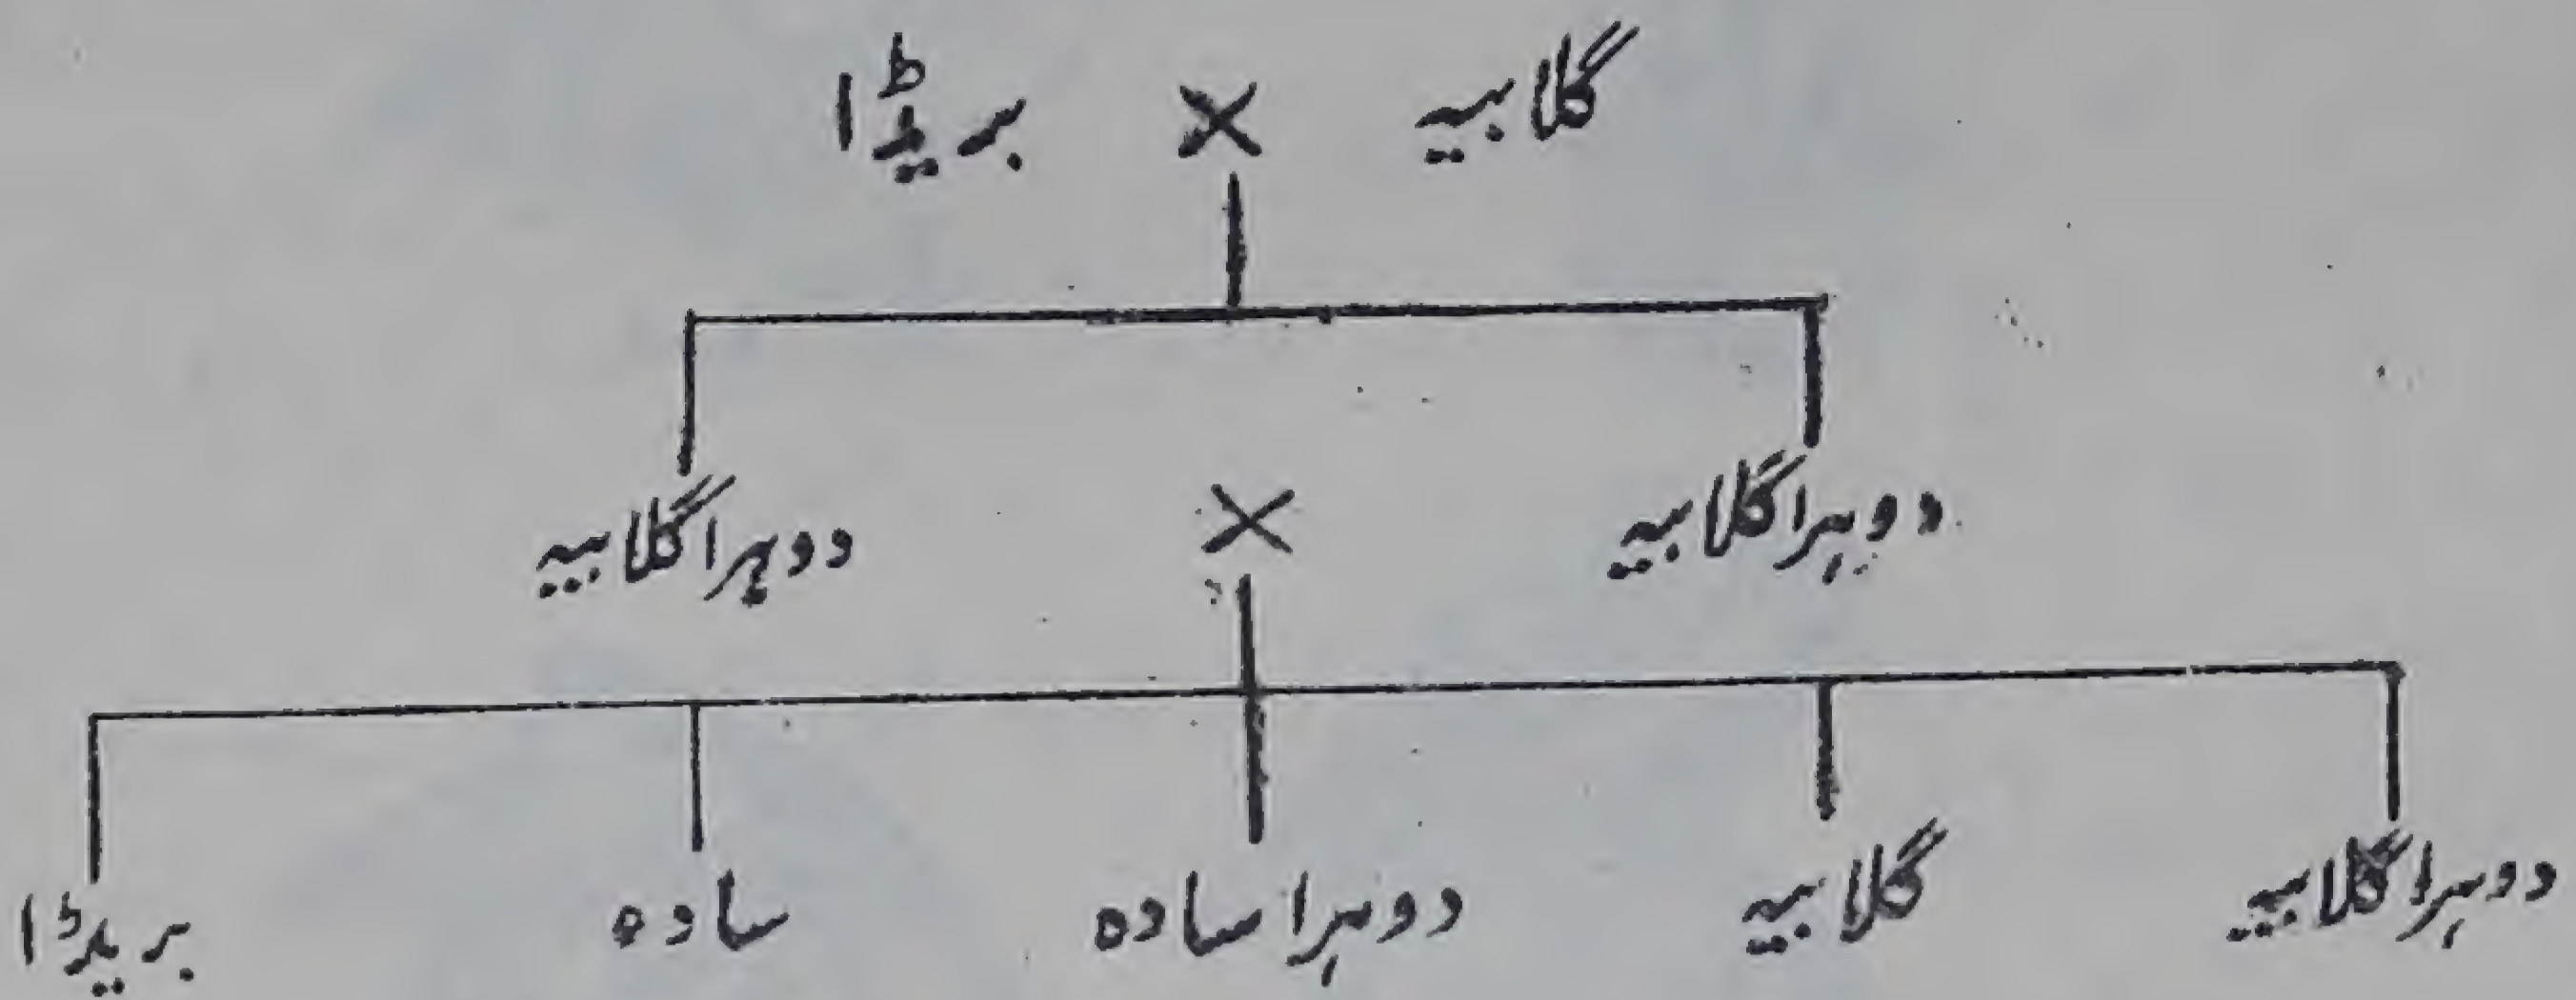 گلابیہ × بریٹا
دوہرا گلابیہ × دوہرا گلابیہ
دوہرا گلابیہ گلابیہ دوہرا سادہ سادہ بریٹا